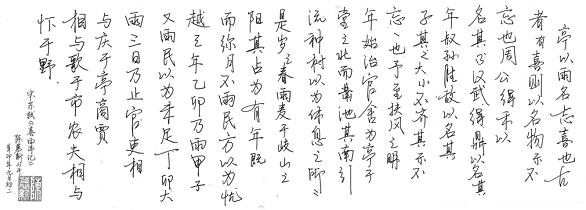 亭以雨名志喜也古
者有喜则以名物示不
忘也周公得禾以
名其书汉武得鼎以名其
年叔孙胜敌以名其
子其之大小不齐其示不
忘一也予至扶风之明
年始治官舍为亭于
堂之北而凿池其南引
流种树以为休息之所
是岁之春雨麦于岐山之
阳其占为有年既
而弥月不雨民方以为忧
越三年乙卯乃雨甲子
又雨民以为未足丁卯大
雨三日乃止官吏相
与庆于亭商贾
相与歌于市农夫相与
忭于野
宋苏轼《喜雨亭记》
辛卯年六月初二